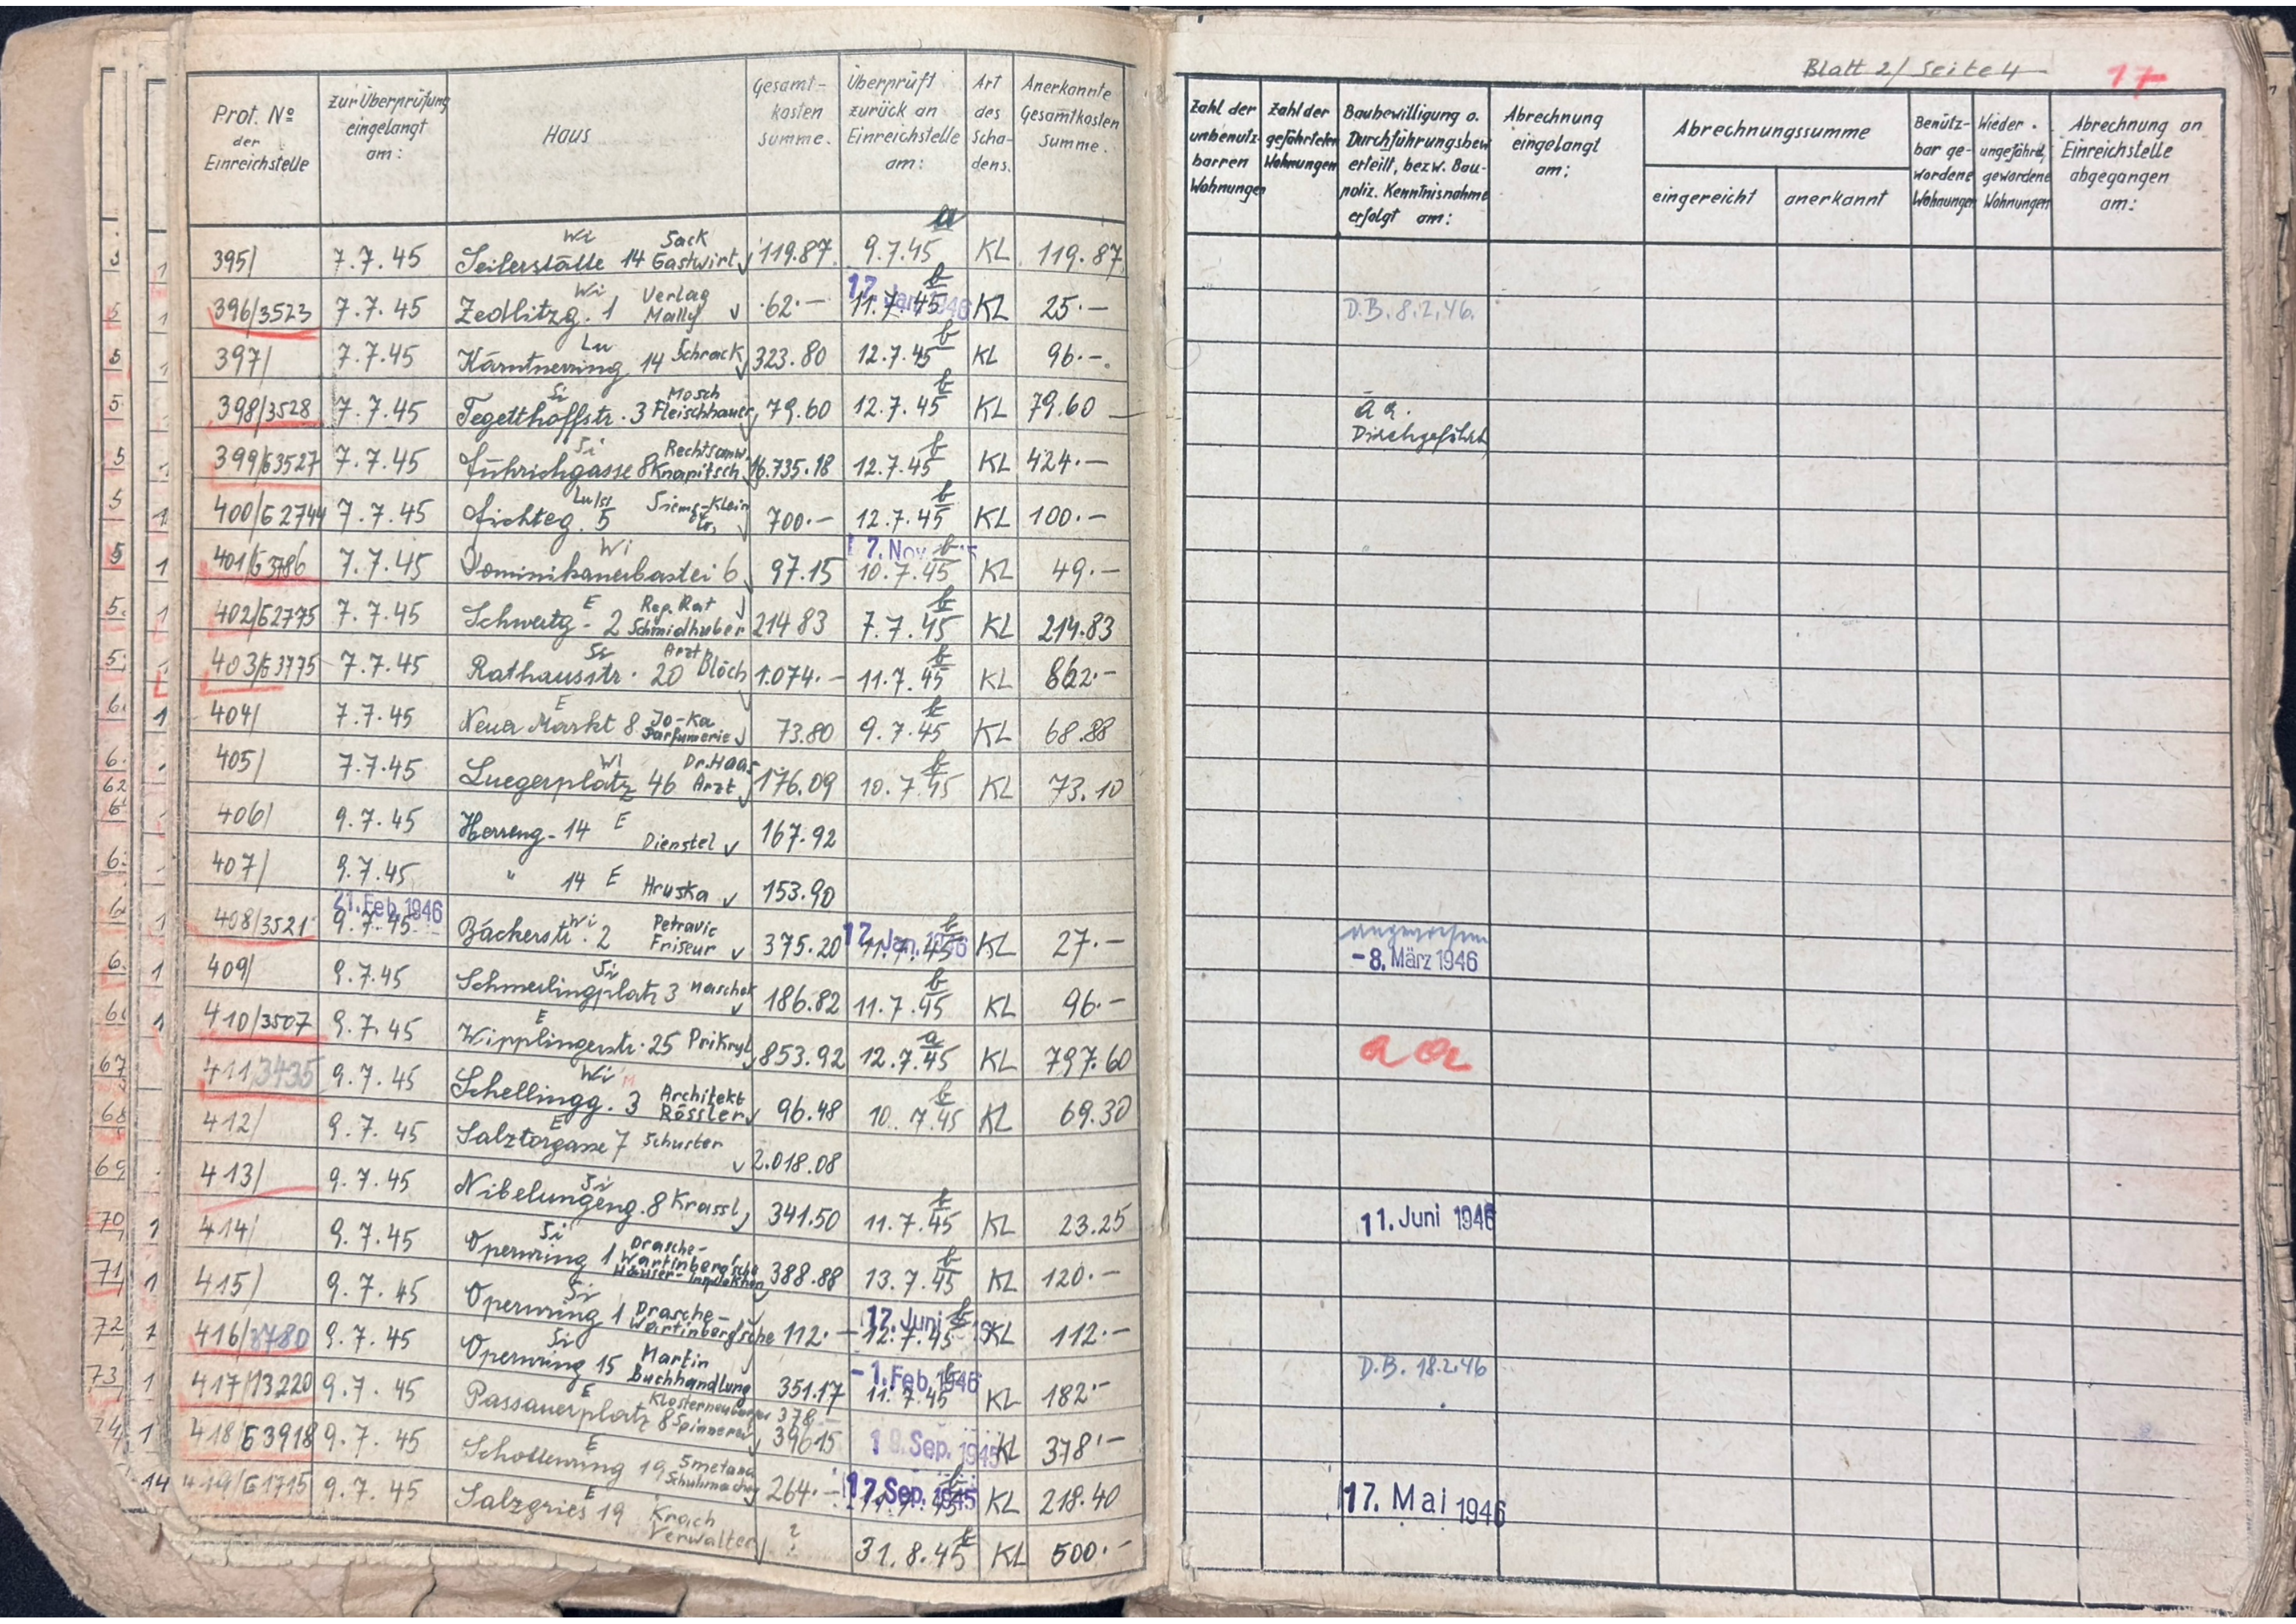 Blatt 2/ Seite 4 17
Prot. Nº der Einreichstelle
zur Überprüfung eingelangt am:
Haus
Gesamt-kosten Summe.
Überprüft zurück an Einreichstelle am:
Art des Scha-dens.
Anerkannte Gesamtkosten Summe.
Zahl der unbenütz-barren Wohnungen
Zahl der gefährteten Wohnungen
Baubewilligung o. Durchführungsbew erteilt, bezw. Bau-poliz. Kenntnisnahme erfolgt am:
Abrechnung eingelangt am:
Abrechnungssumme
eingereicht anerkannt
Benütz-bar ge-wordene Wohnungen
Wieder. ungefährd, gewordene Wohnungen
Abrechnung an Einreichstelle abgegangen am:
395/ 7.7.45 Seilerstätte 14 Wi Sack Gastwirt 119.87 9.7.45 KL 119.87
396/3523 7.7.45 Zedlitzg. 1 Wi Verlag Mally 62.- 17. Jan. 1946 11.7.45 b KL 25.- D.B. 8.2.46.
397/ 7.7.45 Kärntnerring 14 Lu Schrack 323.80 12.7.45 b KL 96.-
398/3528 7.7.45 Tegetthoffstr. 3 Si Mosch Fleischhauer 79.60 12.7.45 b KL 79.60
399/63527 7.7.45 Führichgasse 8 Si Rechtsanw. Knapitsch 16.735.18 12.7.45 b KL 424.-
400/62744 7.7.45 Fichteg. 5 700.- 12.7.45 b KL 100.-
401/63786 7.7.45 Dominikanerbastei 6 Wi 97.15 7. Nov. 10.7.45 b KL 49.-
402/62775 7.7.45 Schwertg. 2 E Rep. Rat Schmidhuber 214 83 7.7.45 b KL 214.83
403/63775 7.7.45 Rathausstr. 20 Si Arzt Blöch 1.074.- 11.7.45 b KL 862.-
404/ 7.7.45 Neuer Markt 8 E Jo-Ka Parfumerie 73.80 9.7.45 b KL 68.88
405/ 7.7.45 Luegerplatz 46 Wi Dr. Haas Arzt 176.09 10.7.45 b KL 73.10
406/ 9.7.45 Herreng. 14 E Dienstel 167.92
407/ 9.7.45 " 14 E Hruska 153.90
408/3521 21. Feb. 1946 9.7.45 Bäckerstr. 2 Wi Petravic Friseur 375.20 17. Jan. 1946 11.7.45 b KL 27.- angewiesen -8. März 1946
409/ 9.7.45 Schmerlingplatz 3 Si 186.82 11.7.45 b KL 96.-
410/3507 9.7.45 Wipplingerstr. 25 E Prikryl 853.92 12.7.45 a KL 797.60 a a
411/3435 9.7.45 Schellingg. 3 Wi Architekt Rössler 96.48 10.7.45 b KL 69.30
412/ 9.7.45 Salztorgasse 7 E Schuster 2.018.08
413/ 9.7.45 Nibelungeng. 8 Si Krassl 341.50 11.7.45 b KL 23.25 11. Juni 1946
414/ 9.7.45 Opernring 1 Si Drasche-Wartinberg'sche Häuser-Inspektion 388.88 13.7.45 b KL 120.-
415/ 9.7.45 Opernring 1 Si Drasche-Wartinberg'sche 112.- 12. Juni 12.7.45 b KL 112.-
416/3780 9.7.45 Opernring 15 Si Martin Buchhandlung 351.17 -1. Feb. 1946 11.7.45 b KL 182.- D.B. 18.2.46
417/13220 9.7.45 Passauerplatz 8 E Klosterneuburger Spinnerei 378 396 15 Sep. 1945 KL 378.-
418/63918 9.7.45 Schottenring 19 E Smetana Schuhmacher 264.- 17. Sep. 1945 KL 218.40 17. Mai 1946
419/61715 9.7.45 Salzgries 19 E Krach Verwalter ? 31.8.45 b KL 500.-